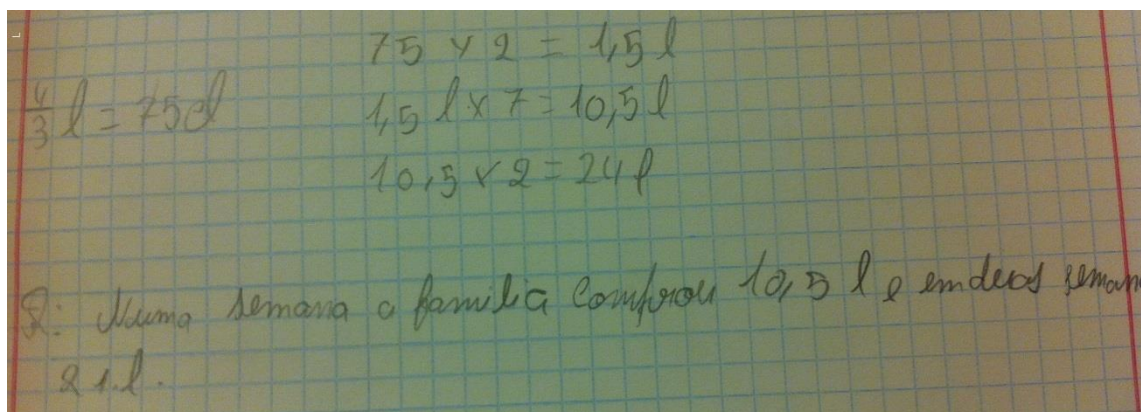 75 × 2 = 1,5 l
4/3 l = 75 cl
1,5 l × 7 = 10,5 l
10,5 × 2 = 24 l
R: Numa semana a familia comprou 10,5 l e em duas seman
21 l.